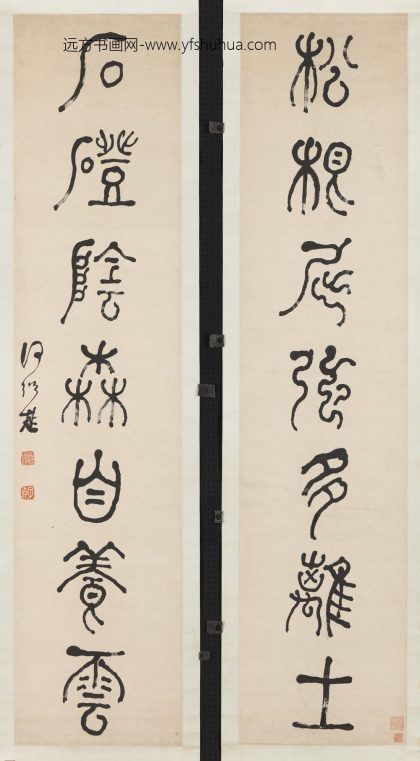 远方书画网-www.yfshuhua.com
松根屈強多離土
石磴陰森自養雲
何紹基